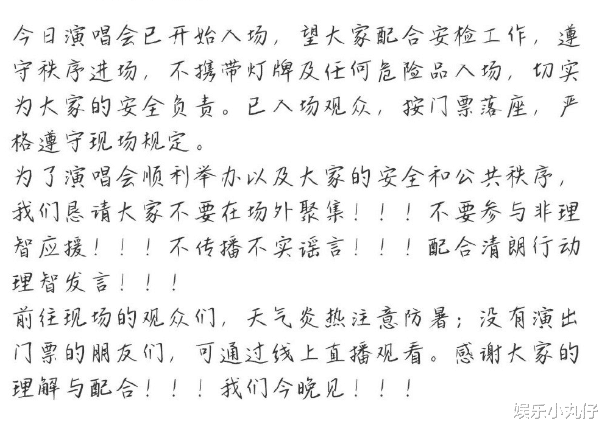 今日演唱会已开始入场，望大家配合安检工作，遵
守秩序进场，不携带灯牌及任何危险品入场，切实
为大家的安全负责。已入场观众，按门票落座，严
格遵守现场规定。
为了演唱会顺利举办以及大家的安全和公共秩序，
我们恳请大家不要在场外聚集！！！不要参与非理
智应援！！！不传播不实谣言！！！配合清朗行动
理智发言！！！
前往现场的观众们，天气炎热注意防暑；没有演出
门票的朋友们，可通过线上直播观看。感谢大家的
理解与配合！！！我们今晚见！！！
娱乐小丸仔